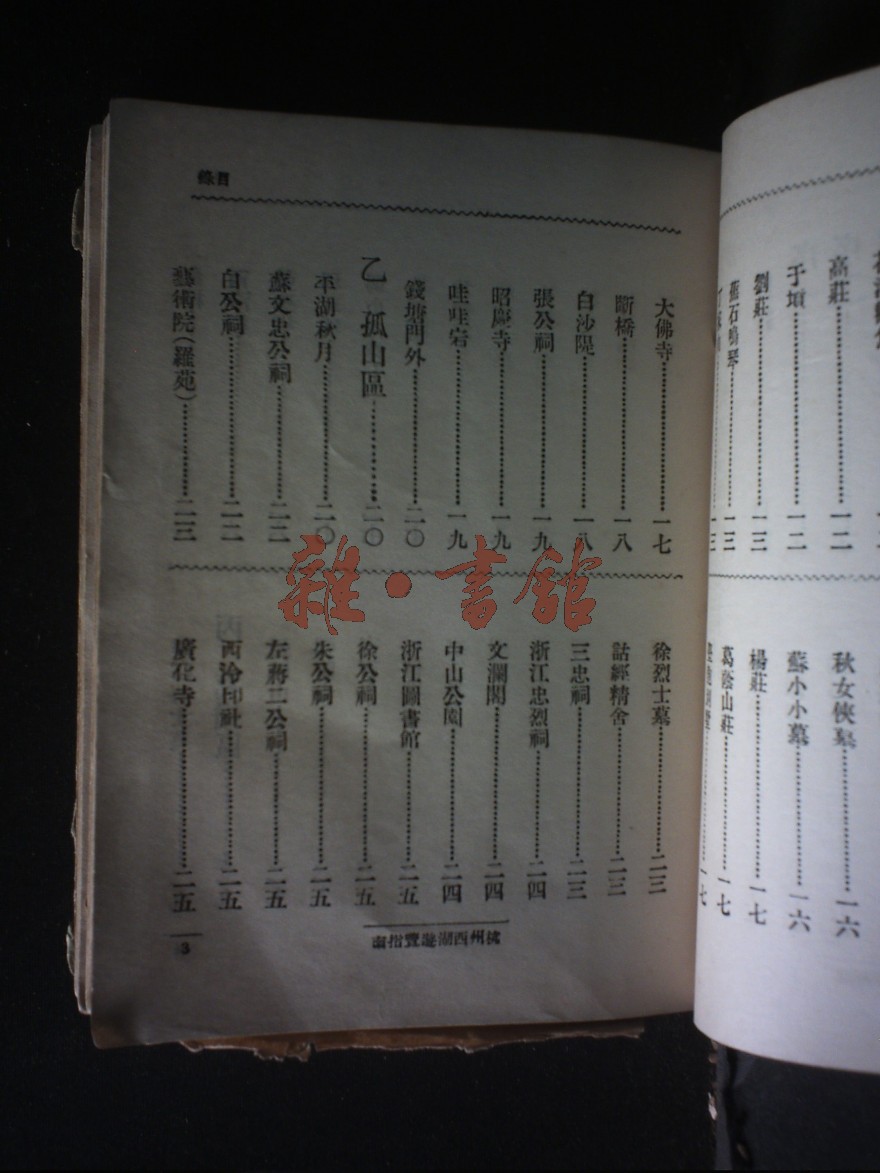 錄目
大佛寺……一七
斷橋……一八
白沙隄……一八
張公祠……一九
昭慶寺……一九
哇哇宕……一九
錢塘門外……二〇
乙 孤山區……二〇
平湖秋月……二〇
蘇文忠公祠……二二
白公祠……二二
藝術院(羅苑)……二三
徐烈士墓……二三
詁經精舍……二三
三忠祠……二三
浙江忠烈祠……二四
文瀾閣……二四
中山公園……二四
浙江圖書館……二五
徐公祠……二五
朱公祠……二五
左蔣二公祠……二五
西泠印社……二五
廣化寺……二五
杭州西湖遊覽指南
3
雜·書館
高莊……一二
于墳……一二
劉莊……一三
蕉石鳴琴……一三
秋女俠墓……一六
蘇小小墓……一六
楊莊……一七
葛蔭山莊……一七